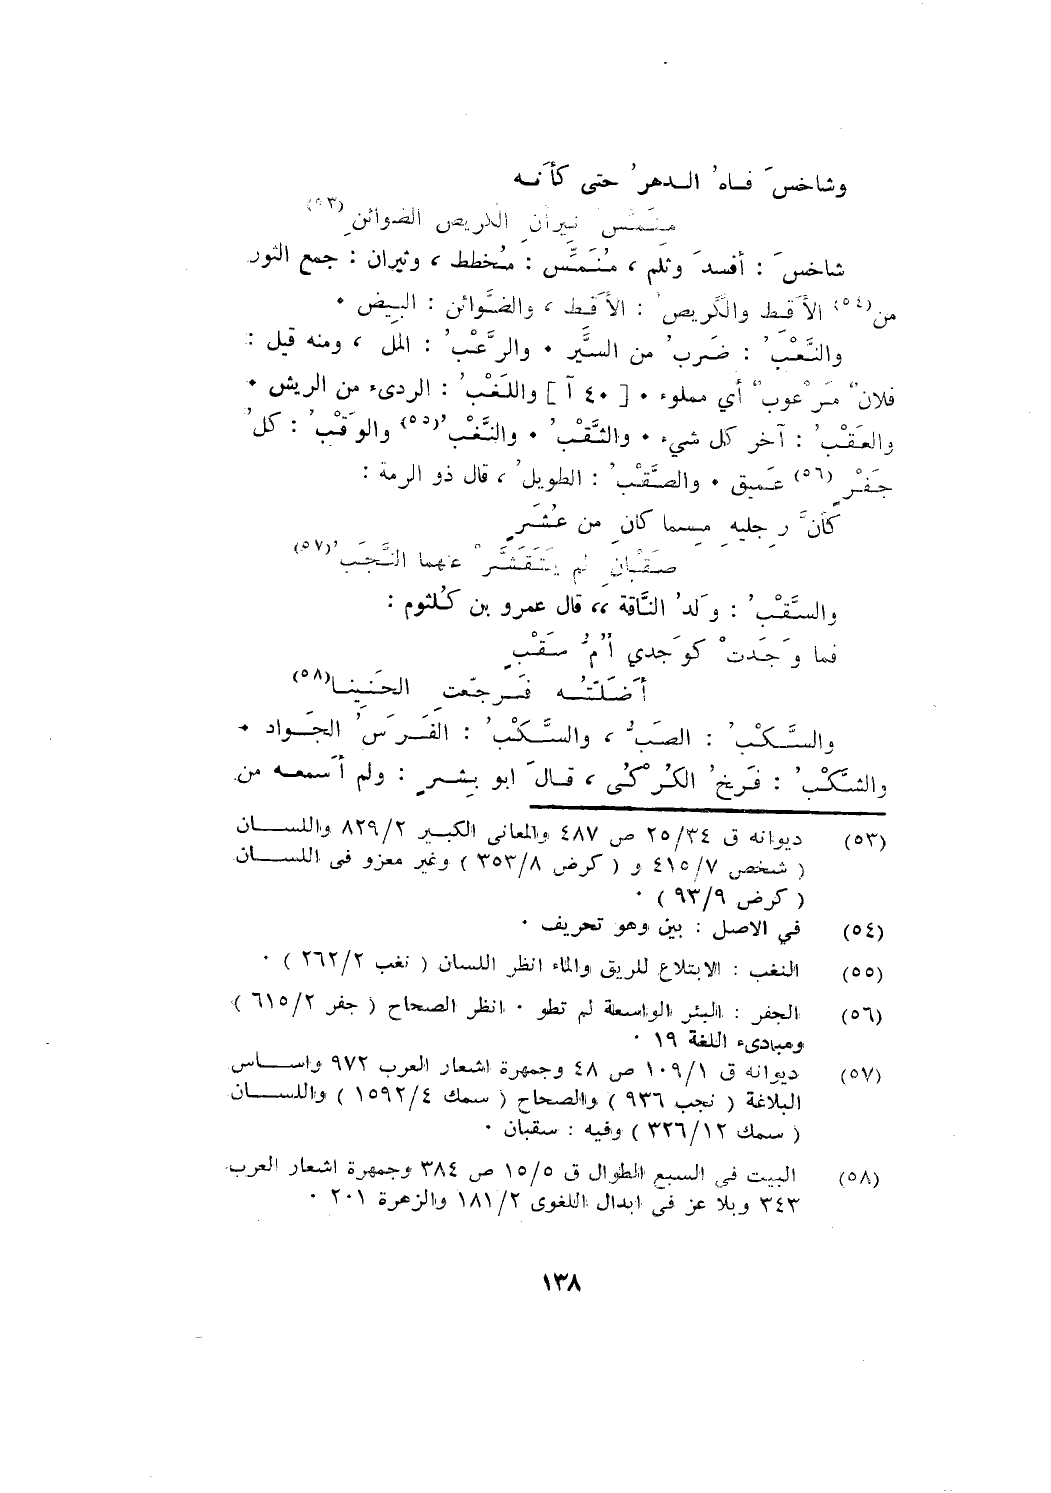 وشاخسَ فــاهُ الــدهرُ حتى كأَنــه
مُنَمِّسُ ثيرانِ الكريص الضوائنِ(٥٣)
شاخسَ : أفسدَ وثلم ، مُنَمِّس : مُخطط ، وثيران : جمع الثور
من(٥٤) الأَقِط والكَريصُ : الأَقط ، والضَّوائن : البيض ٠
والنَّعْبُ : ضَربُ من السَّير ٠ والرَّعْبُ : المل ، ومنه قيل :
فلانٌ مَرْعوبٌ أي مملوء ٠ [ ٤٠ آ ] واللَغْبُ : الردىء من الريش ٠
والعَقْبُ : آخر كل شيء ٠ والثَّقْبُ ٠ والنَّغْبُ(٥٥) والوَقْبُ : كلُ
جَفْرٍ (٥٦) عَميق ٠ والصَّقْبُ : الطويلُ ، قال ذو الرمة :
كأنَّ رِجليهِ مسما كانِ من عُشَرٍ
صَقْبانِ لم يَتَقَشَّرْ عنهما النَّجَبُ(٥٧)
والسَّقْبُ : وَلدُ النَّاقة ،، قال عمرو بن كُلثوم :
فما وَجَدتْ كوَجدي أُمُّ سَقْبٍ
أَضَلَّتْــه فَــرجّعتِ الحَنينــا(٥٨)
والسَّــكْبُ : الصَبُّ ، والسَّــكْبُ : الفَــرَسُ الجَــواد ٠
والشَّكْبُ : فَرخُ الكُرْكُى ، قــالَ ابو بِشــرٍ : ولم أَسمعــه من
(٥٣) ديوانه ق ٢٥/٣٤ ص ٤٨٧ والمعانى الكبيــر ٨٢٩/٢ واللســان
( شخص ٤١٥/٧ و ( كرض ٣٥٣/٨ ) وغير معزو فى اللســان
( كرض ٩٣/٩ ) ٠
(٥٤) في الاصل : بين وهو تحريف ٠
(٥٥) النغب : الابتلاع للريق والماء انظر اللسان ( نغب ٢٦٢/٢ ) ٠
(٥٦) الجفر : البئر الواسعة لم تطو ٠ انظر الصحاح ( جفر ٦١٥/٢ )
ومبادىء اللغة ١٩ ٠
(٥٧) ديوانه ق ١٠٩/١ ص ٤٨ وجمهرة اشعار العرب ٩٧٢ واســاس
البلاغة ( نجب ٩٣٦ ) والصحاح ( سمك ١٥٩٢/٤ ) واللســان
( سمك ٣٢٦/١٢ ) وفيه : سقبان ٠
(٥٨) البيت فى السبع الطوال ق ١٥/٥ ص ٣٨٤ وجمهرة اشعار العرب
٣٤٣ وبلا عز فى ابدال اللغوى ١٨١/٢ والزهرة ٢٠١ ٠
١٣٨